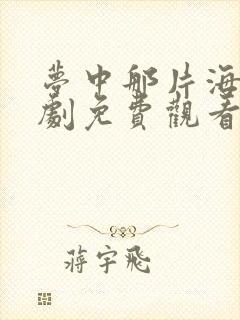 夢中那片海
劇免費觀看
蔣宇飛